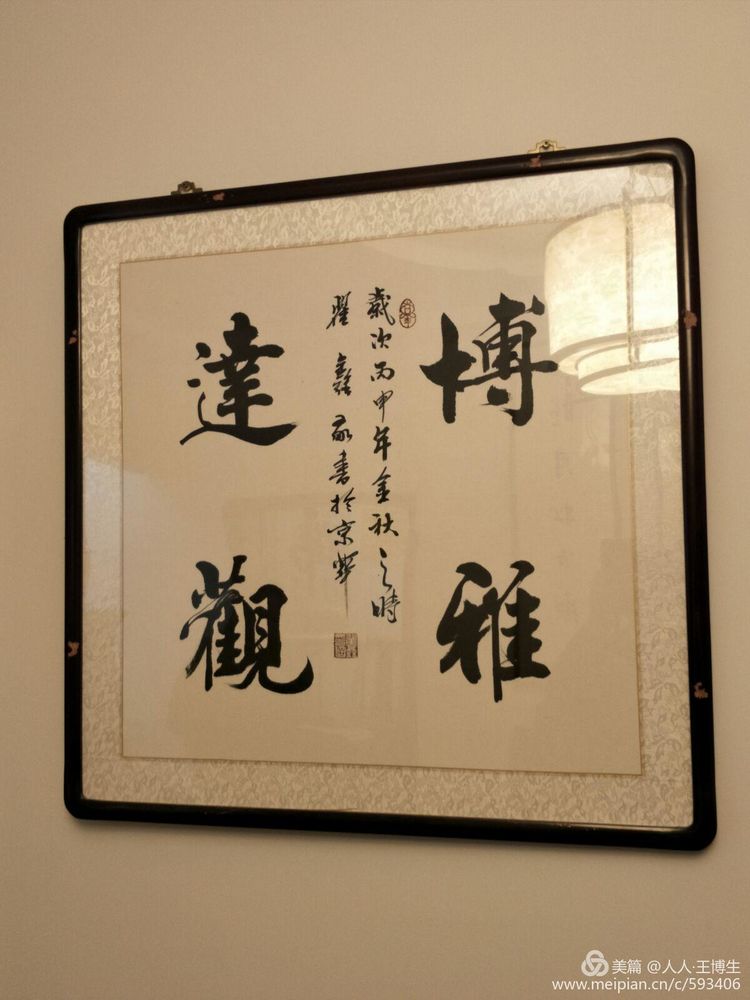 博雅
歲次丙申年金秋之時
翟鑫敬書於京華
達觀
美篇 @人人·王博生
www.meipian.cn/c/593406